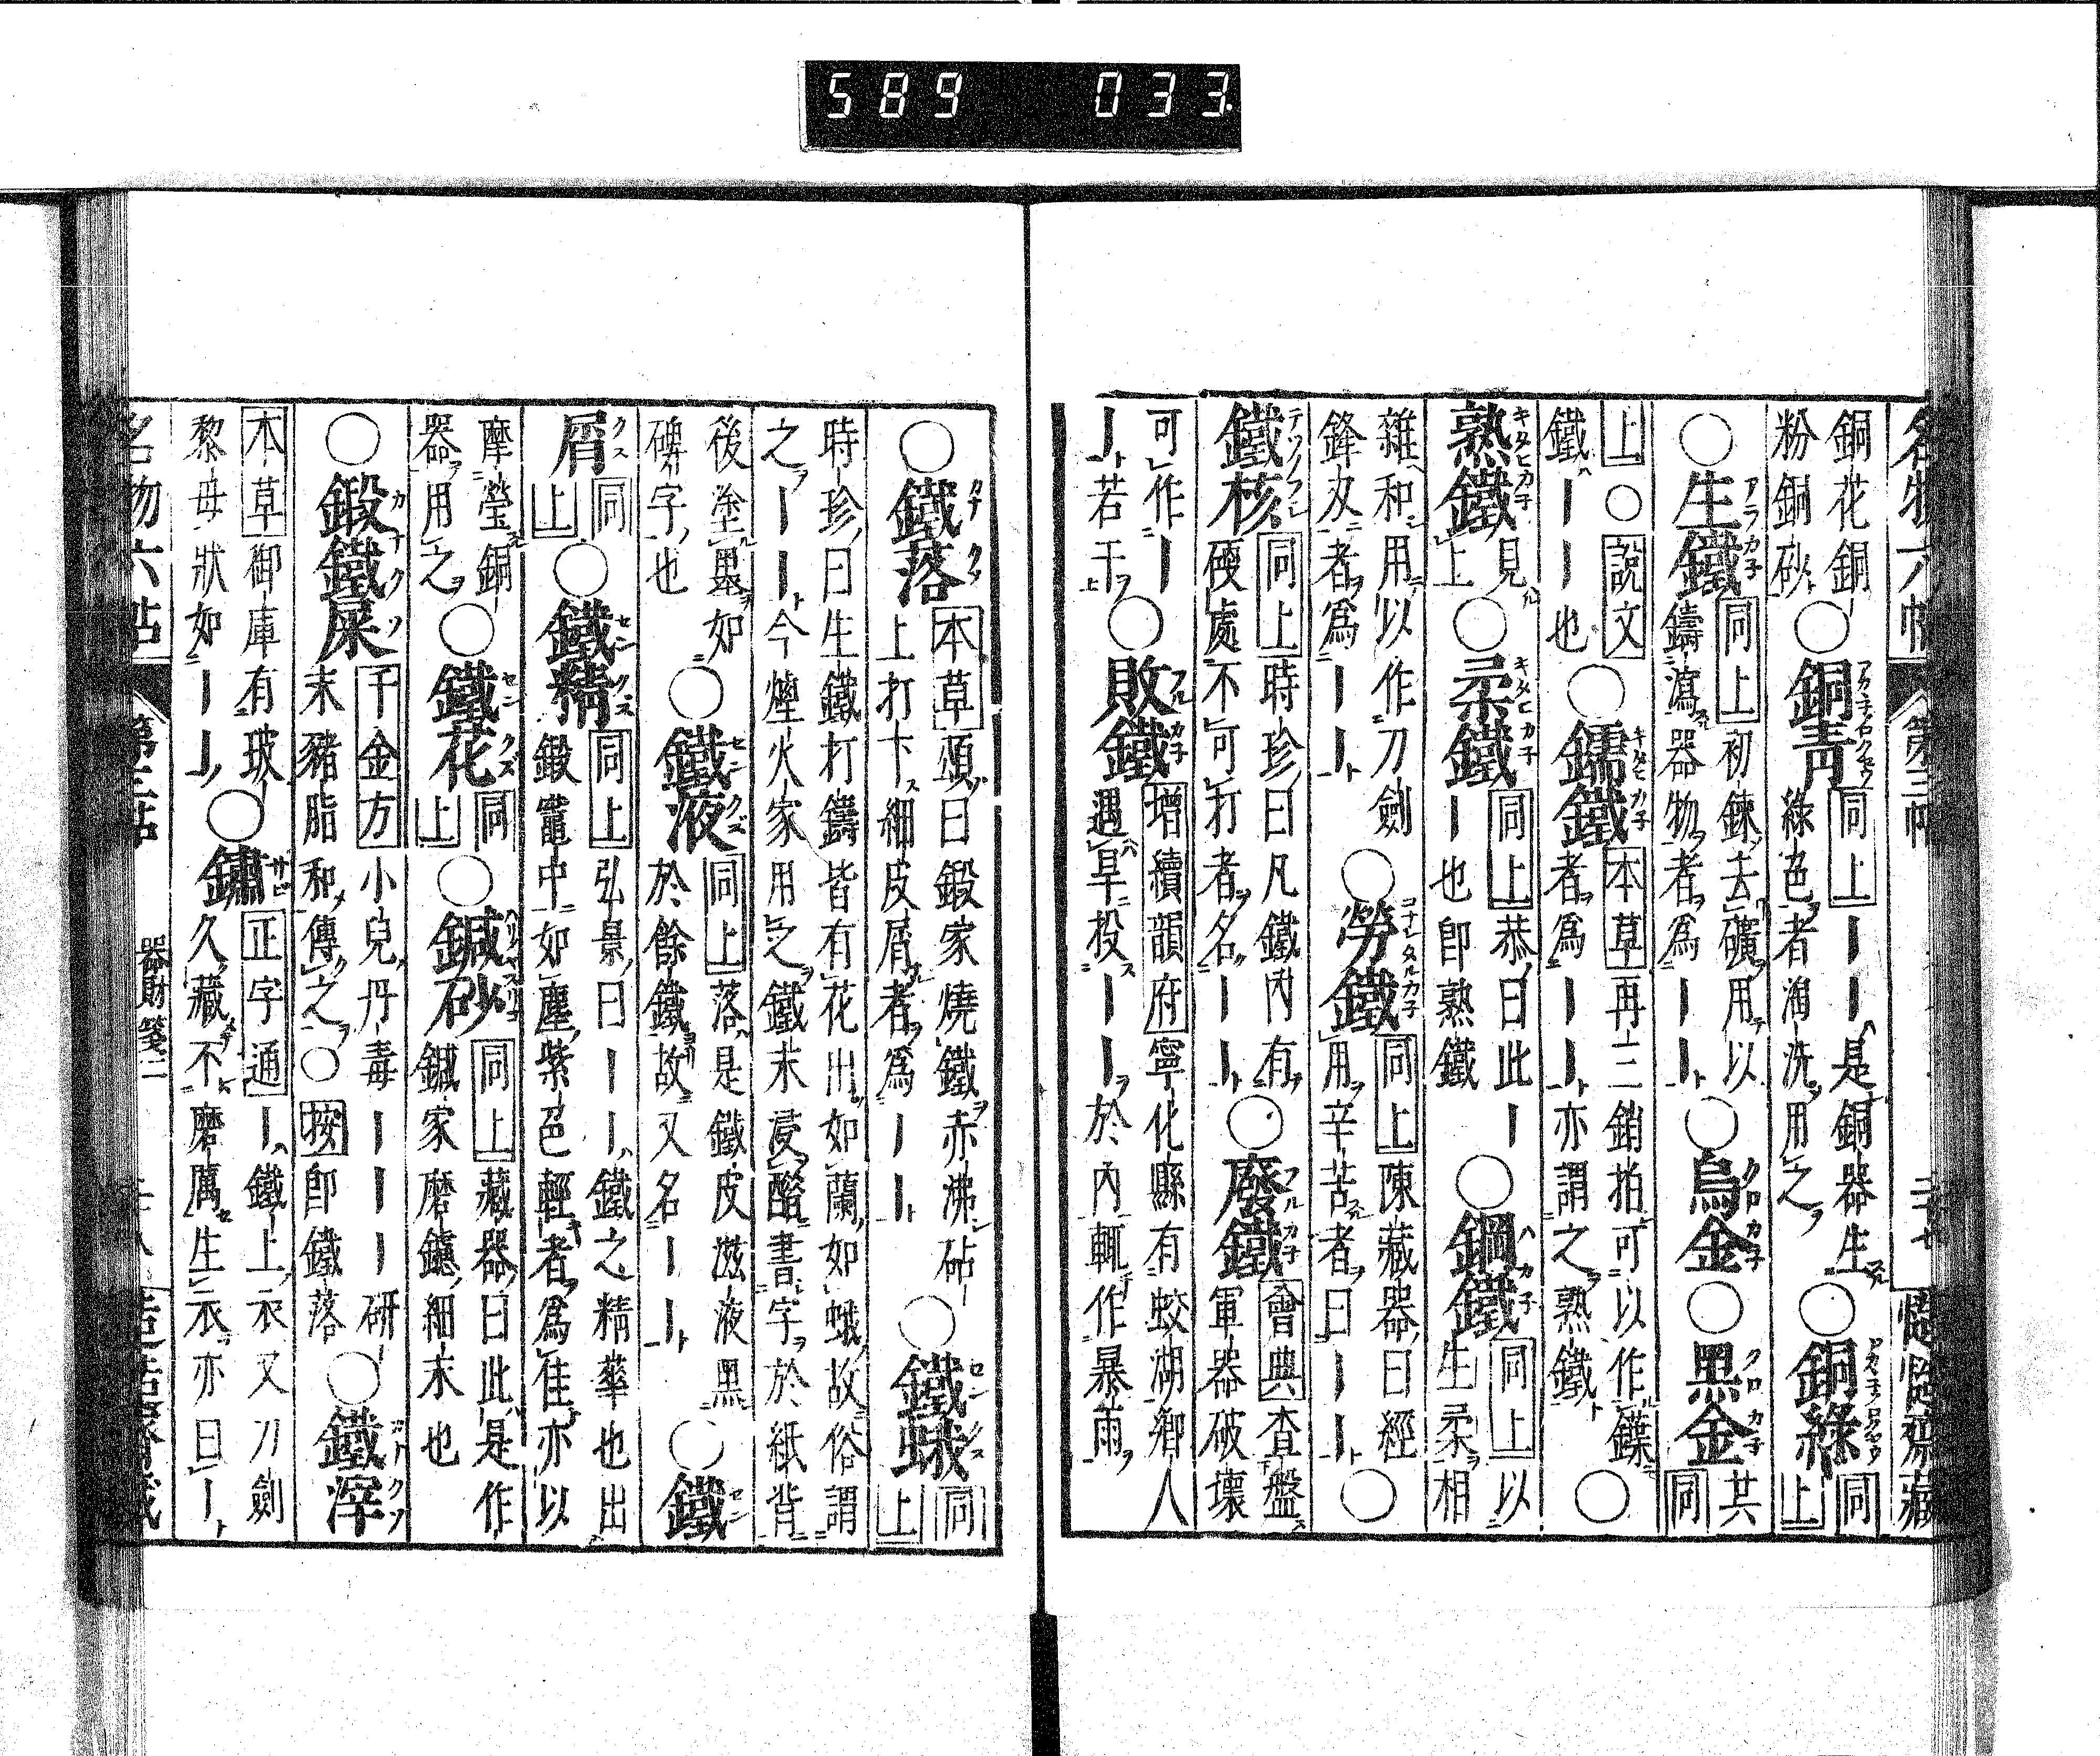 589 033
名物六帖 第三帖
銅花銅粉銅砂○銅青同上ーー是銅器生綠色者淘洗用之○銅綠同上
○生鐵同上初鍊去礦用以鑄瀉器物者爲ーー○烏金○黑金共同
上○說文鐵ーー也○鑐鐵本草再三銷拍可以作鍱者爲ーー亦謂之熟鐵○
熟鐵見上○柔鐵同上恭曰此ーー也卽熟鐵○鋼鐵同上以生柔相
雜和用以作刀劍鋒刃者爲ーー○勞鐵同上陳藏器曰經用辛苦者曰ーー○
鐵核同上時珍曰凡鐵內有硬處不可打者名ーー○廢鐵會典查盤軍器破壞
可作ーー若干○敗鐵增續韻府寧化縣有蛟湖鄉人遇旱投ーー於內輒作暴雨
○鐵落本草頌曰鍛家燒鐵赤沸砧上打下細皮屑者爲ーー○鐵蛾同上
時珍曰生鐵打鑄皆有花出如蘭如蛾故俗謂之ーー今煙火家用之鐵末浸醋書字於紙背
後塗墨如碑字也○鐵液同上落是鐵皮滋液黑於餘鐵故又名ーー○鐵
屑同上○鐵精同上弘景曰ーー鐵之精華也出鍛竈中如塵紫色輕者爲佳亦以
摩瑩銅器用之○鐵花同上○鍼砂同上藏器曰此是作鍼家磨鑢細末也
○鍛鐵屎千金方小兒丹毒ーーー研末豬脂和傅之○按卽鐵落○鐵滓
本草御庫有玻黎母狀如ーー○鏽正字通ー鐵上衣又刀劍久藏不磨厲生衣亦曰ー
器財箋二